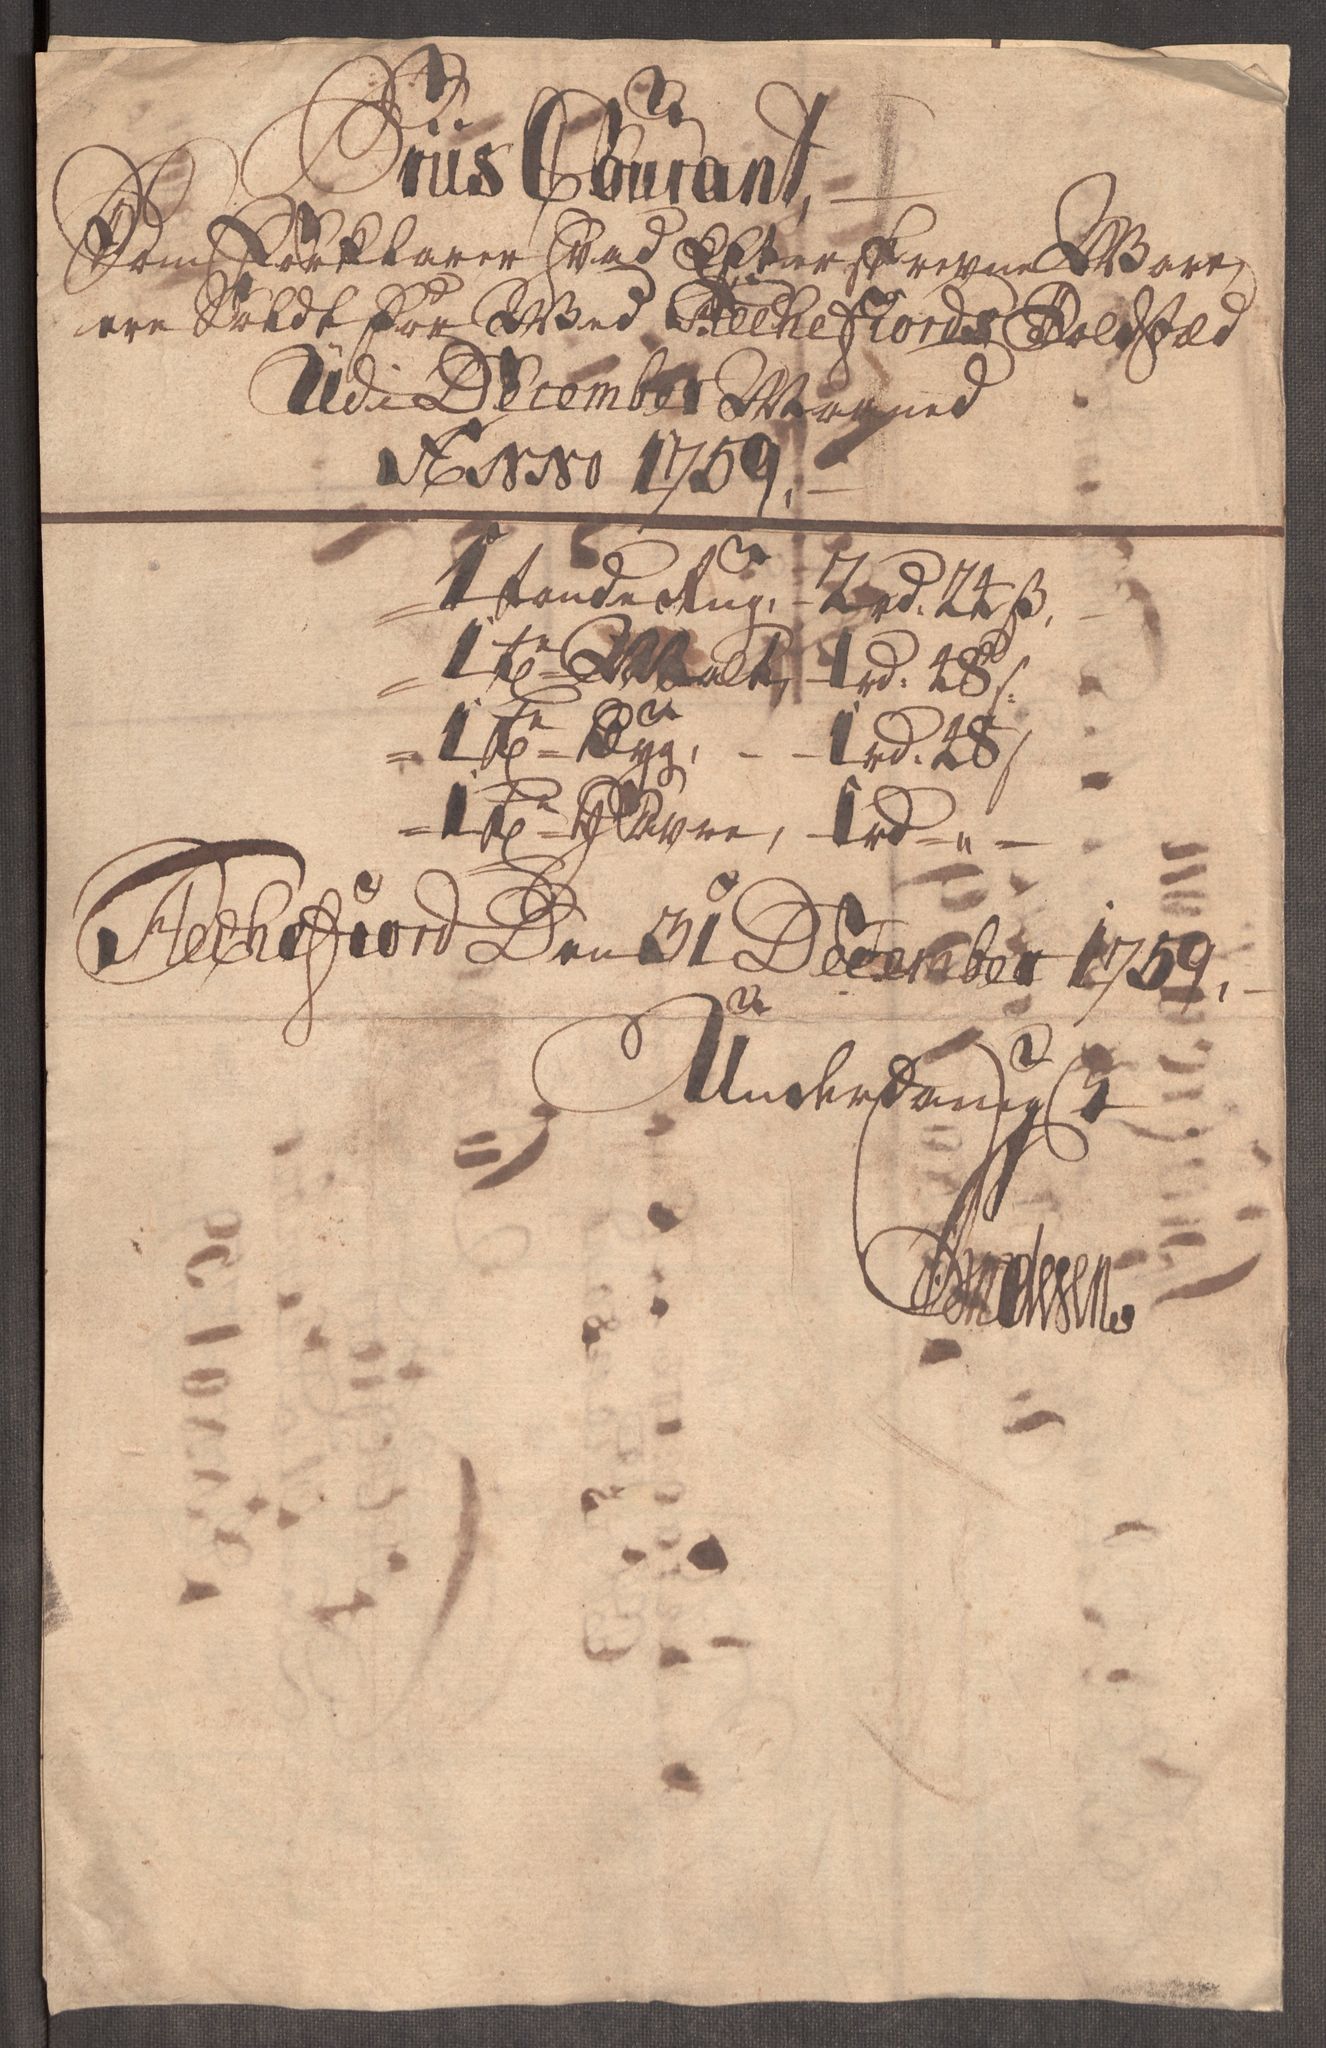 Priis Courant,
Som Forklarer hvad Efterskrevne Ware,
ere Soldt for Wed Flechefiords Toldsted
Udi December Maaned
Anno 1759,
1 tønde Rug, - 2 rd. 24 ß,
1 tde Malt, 1 rd. 48 ß.
1 tde Byg, - - 1 rd. 48 ß
1 tde Havre, 1 rd - " -
Flechefiord Den 31 December 1759,
Underdanigst